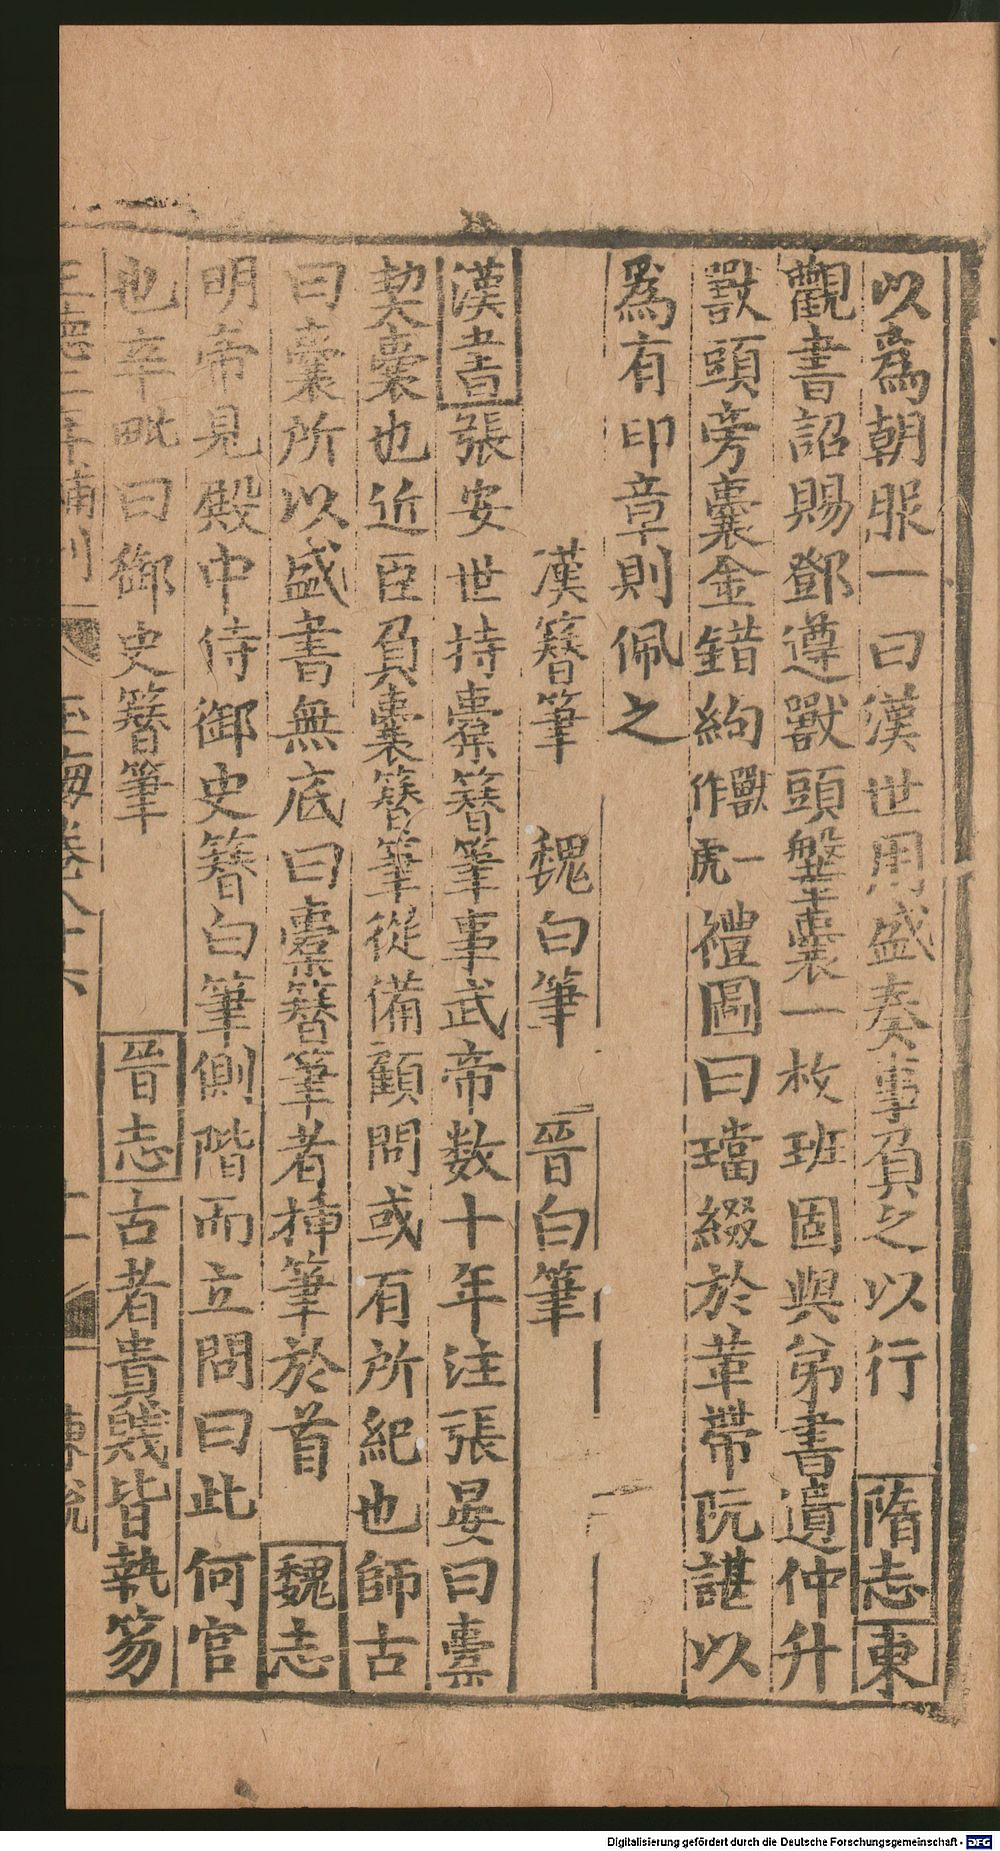 以爲朝服一曰漢世用盛奏事負之以行　隋志東
觀書詔賜鄧遵獸頭鞶囊一枚班固與弟書遺仲升
獸頭旁囊金錯鉤獸一作虎禮圖曰璫綴於革帶阮諶以
爲有印章則佩之
漢簪筆　魏白筆　晉白筆
漢書張安世持橐簪筆事武帝數十年注張晏曰橐
契囊也近臣負囊簪筆從備顧問或有所紀也師古
曰囊所以盛書無底曰橐簪筆者揷筆於首　魏志
明帝見殿中侍御史簪白筆側階而立問曰此何官
也辛毗曰御史簪筆　晉志古者貴賤皆執笏
正德二年補刊　玉海卷八十六　十一　陳銳
Digitalisierung gefördert durch die Deutsche Forschungsgemeinschaft - DFG